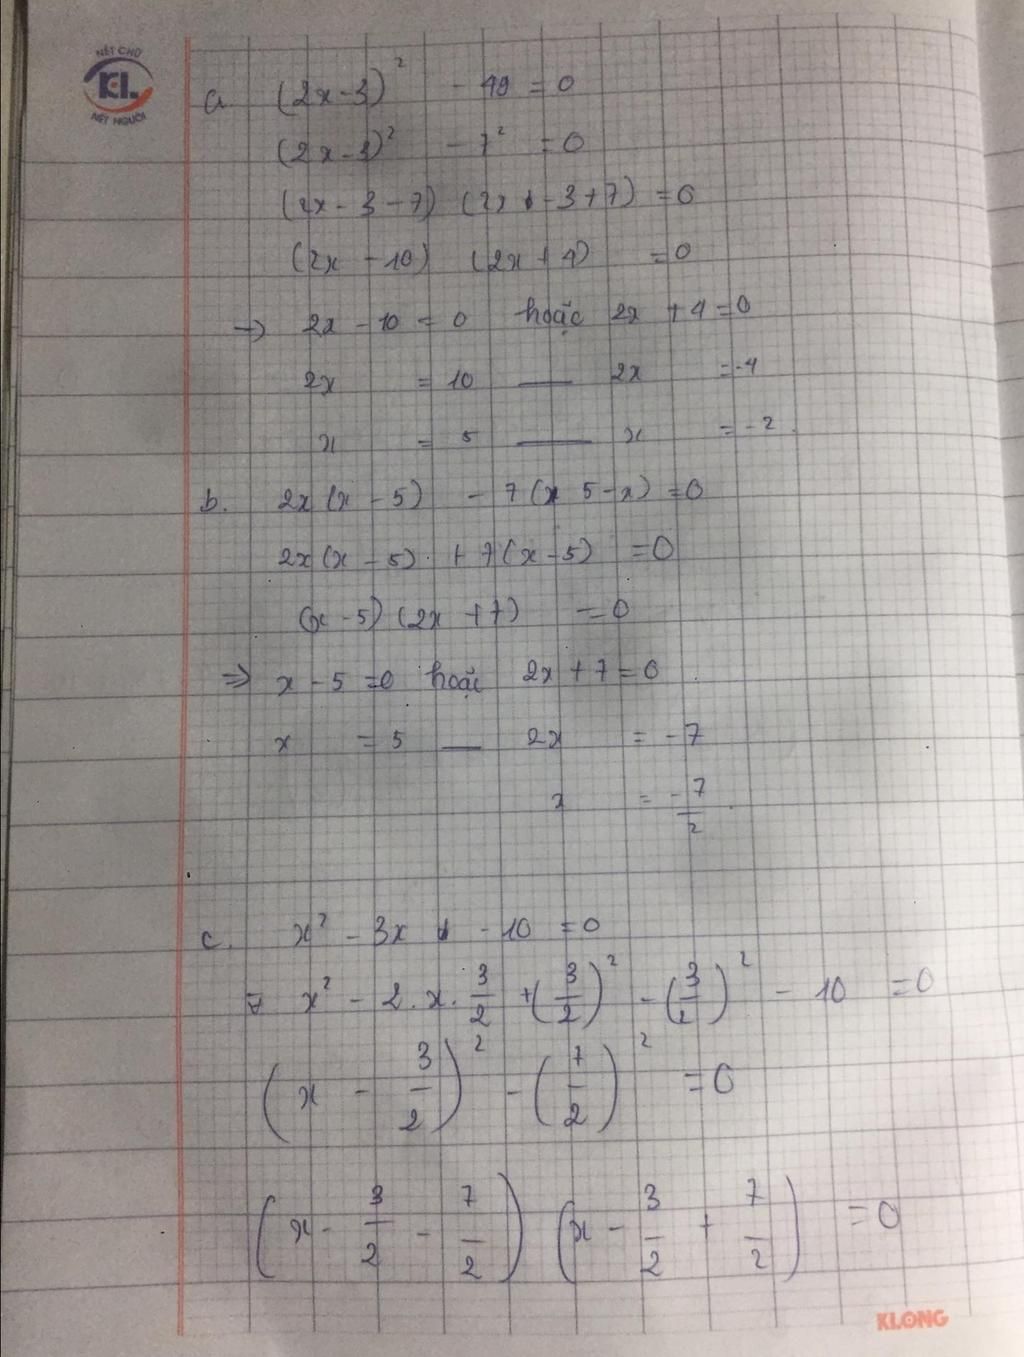 NÉT CHỮ
KL
NẾT NGƯỜI
a (2x-3)² - 49 = 0
(2x-3)² - 7² = 0
(2x - 3 - 7) (2x - 3 + 7) = 0
(2x - 10) (2x + 4) = 0
→ 2x - 10 = 0 hoặc 2x + 4 = 0
2x = 10 — 2x = -4
x = 5 — x = -2.
b. 2x(x - 5) - 7(5 - x) = 0
2x(x - 5) + 7(x - 5) = 0
(x - 5) (2x + 7) = 0
⇒ x - 5 = 0 hoặc 2x + 7 = 0.
x = 5 — 2x = -7
x = -7/2.
c. x² - 3x - 10 = 0
x² - 2.x.3/2 + (3/2)² - (3/2)² - 10 = 0
(x - 3/2)² - (7/2)² = 0
(x - 3/2 - 7/2) (x - 3/2 + 7/2) = 0
KLONG